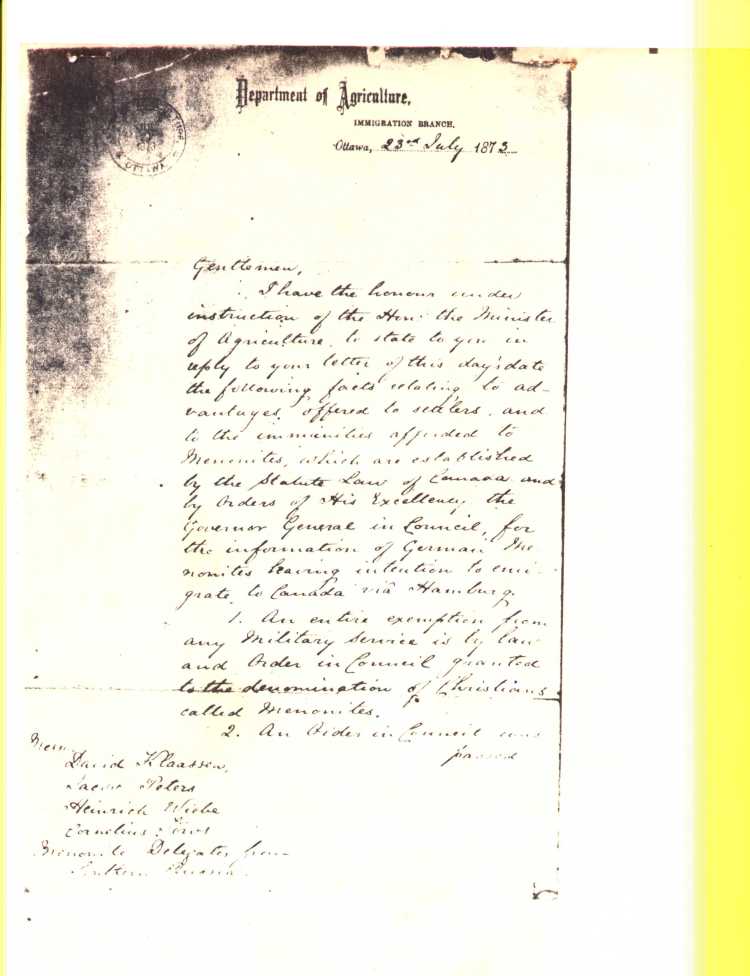 Department of Agriculture,
IMMIGRATION BRANCH.
Ottawa, 23rd July 1873
OTTAWA
Gentlemen,
I have the honour under
instruction of the Hon: the Minister
of Agriculture, to state to you in
reply to your letter of this day's date
the following facts relating to ad-
vantages offered to settlers, and
to the immunities afforded to
Menonites, which are established
by the Statute Law of Canada and
by Orders of His Excellency the
Governor General in Council, for
the information of German Me
nonites having intention to emi-
grate to Canada via Hamburg.
1. An entire exemption from
any Military Service is by law
and Order in Council granted
to the denomination of Christians
called Menonites.
2. An Order in Council was
passed
David Klaassen,
Jacob Peters
Heinrich Wiebe
Cornelius Toews
Menonite Delegates from
Southern Russia.